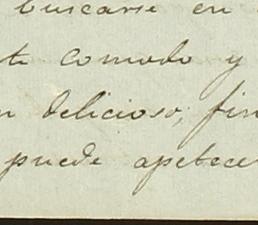 buscarse en
te comodo y
n delicioso, fin
puede apetecer